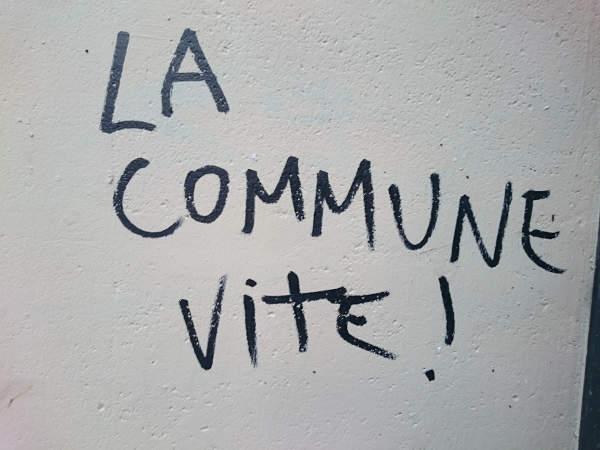 LA
COMMUNE
VITE !